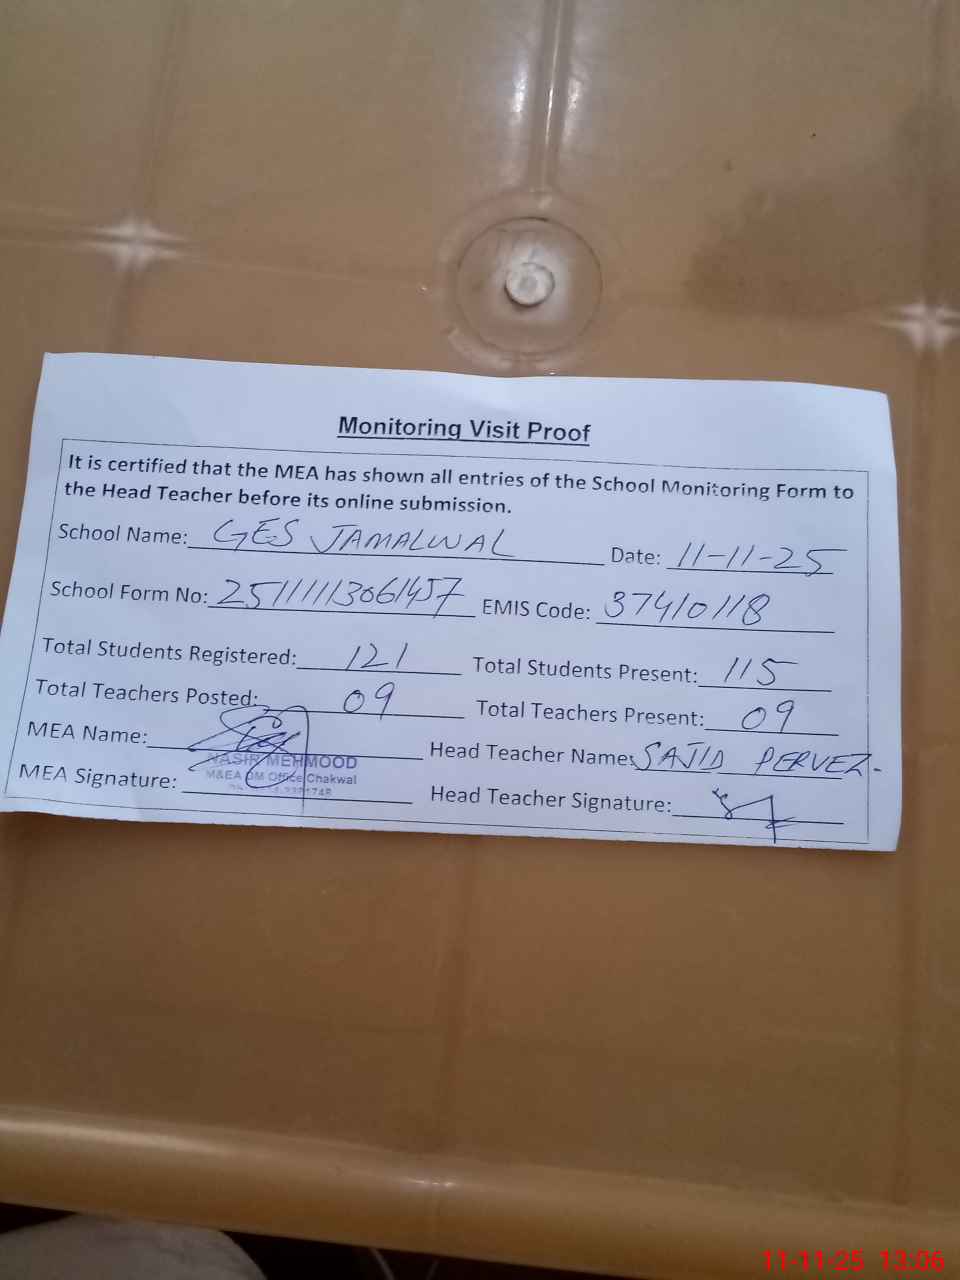 Monitoring Visit Proof
It is certified that the MEA has shown all entries of the School Monitoring Form to
the Head Teacher before its online submission.
School Name: GES JAMALWAL Date: 11-11-25
School Form No: EMIS Code: 37410118
Total Students Registered: 121 Total Students Present: 115
Total Teachers Posted: 09 Total Teachers Present: 09
MEA Name: Head Teacher Name: SAJID PERVEZ.
NASIR MEHMOOD
M&EA DM Office Chakwal
MEA Signature: Head Teacher Signature:
11-11-25 13:06